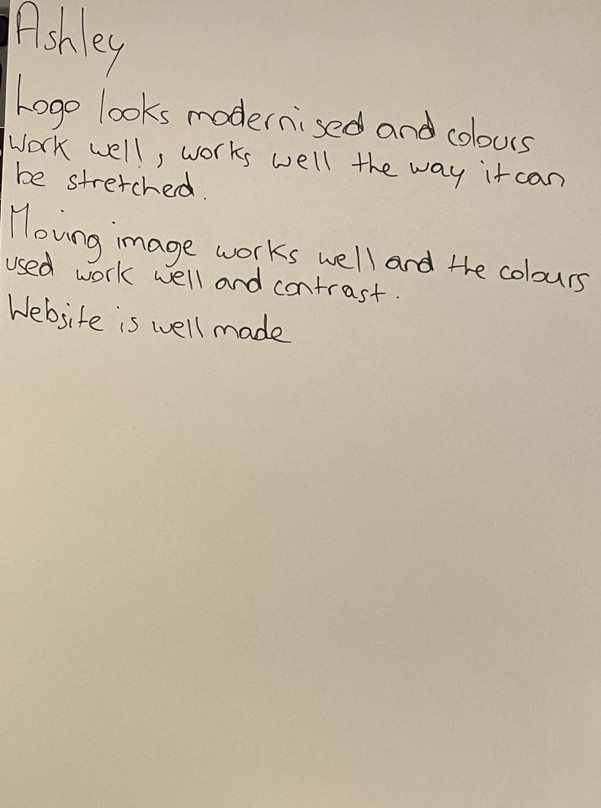 Ashley
Logo looks modernised and colours
work well, works well the way it can
be stretched.
Moving image works well and the colours
used work well and contrast.
Website is well made